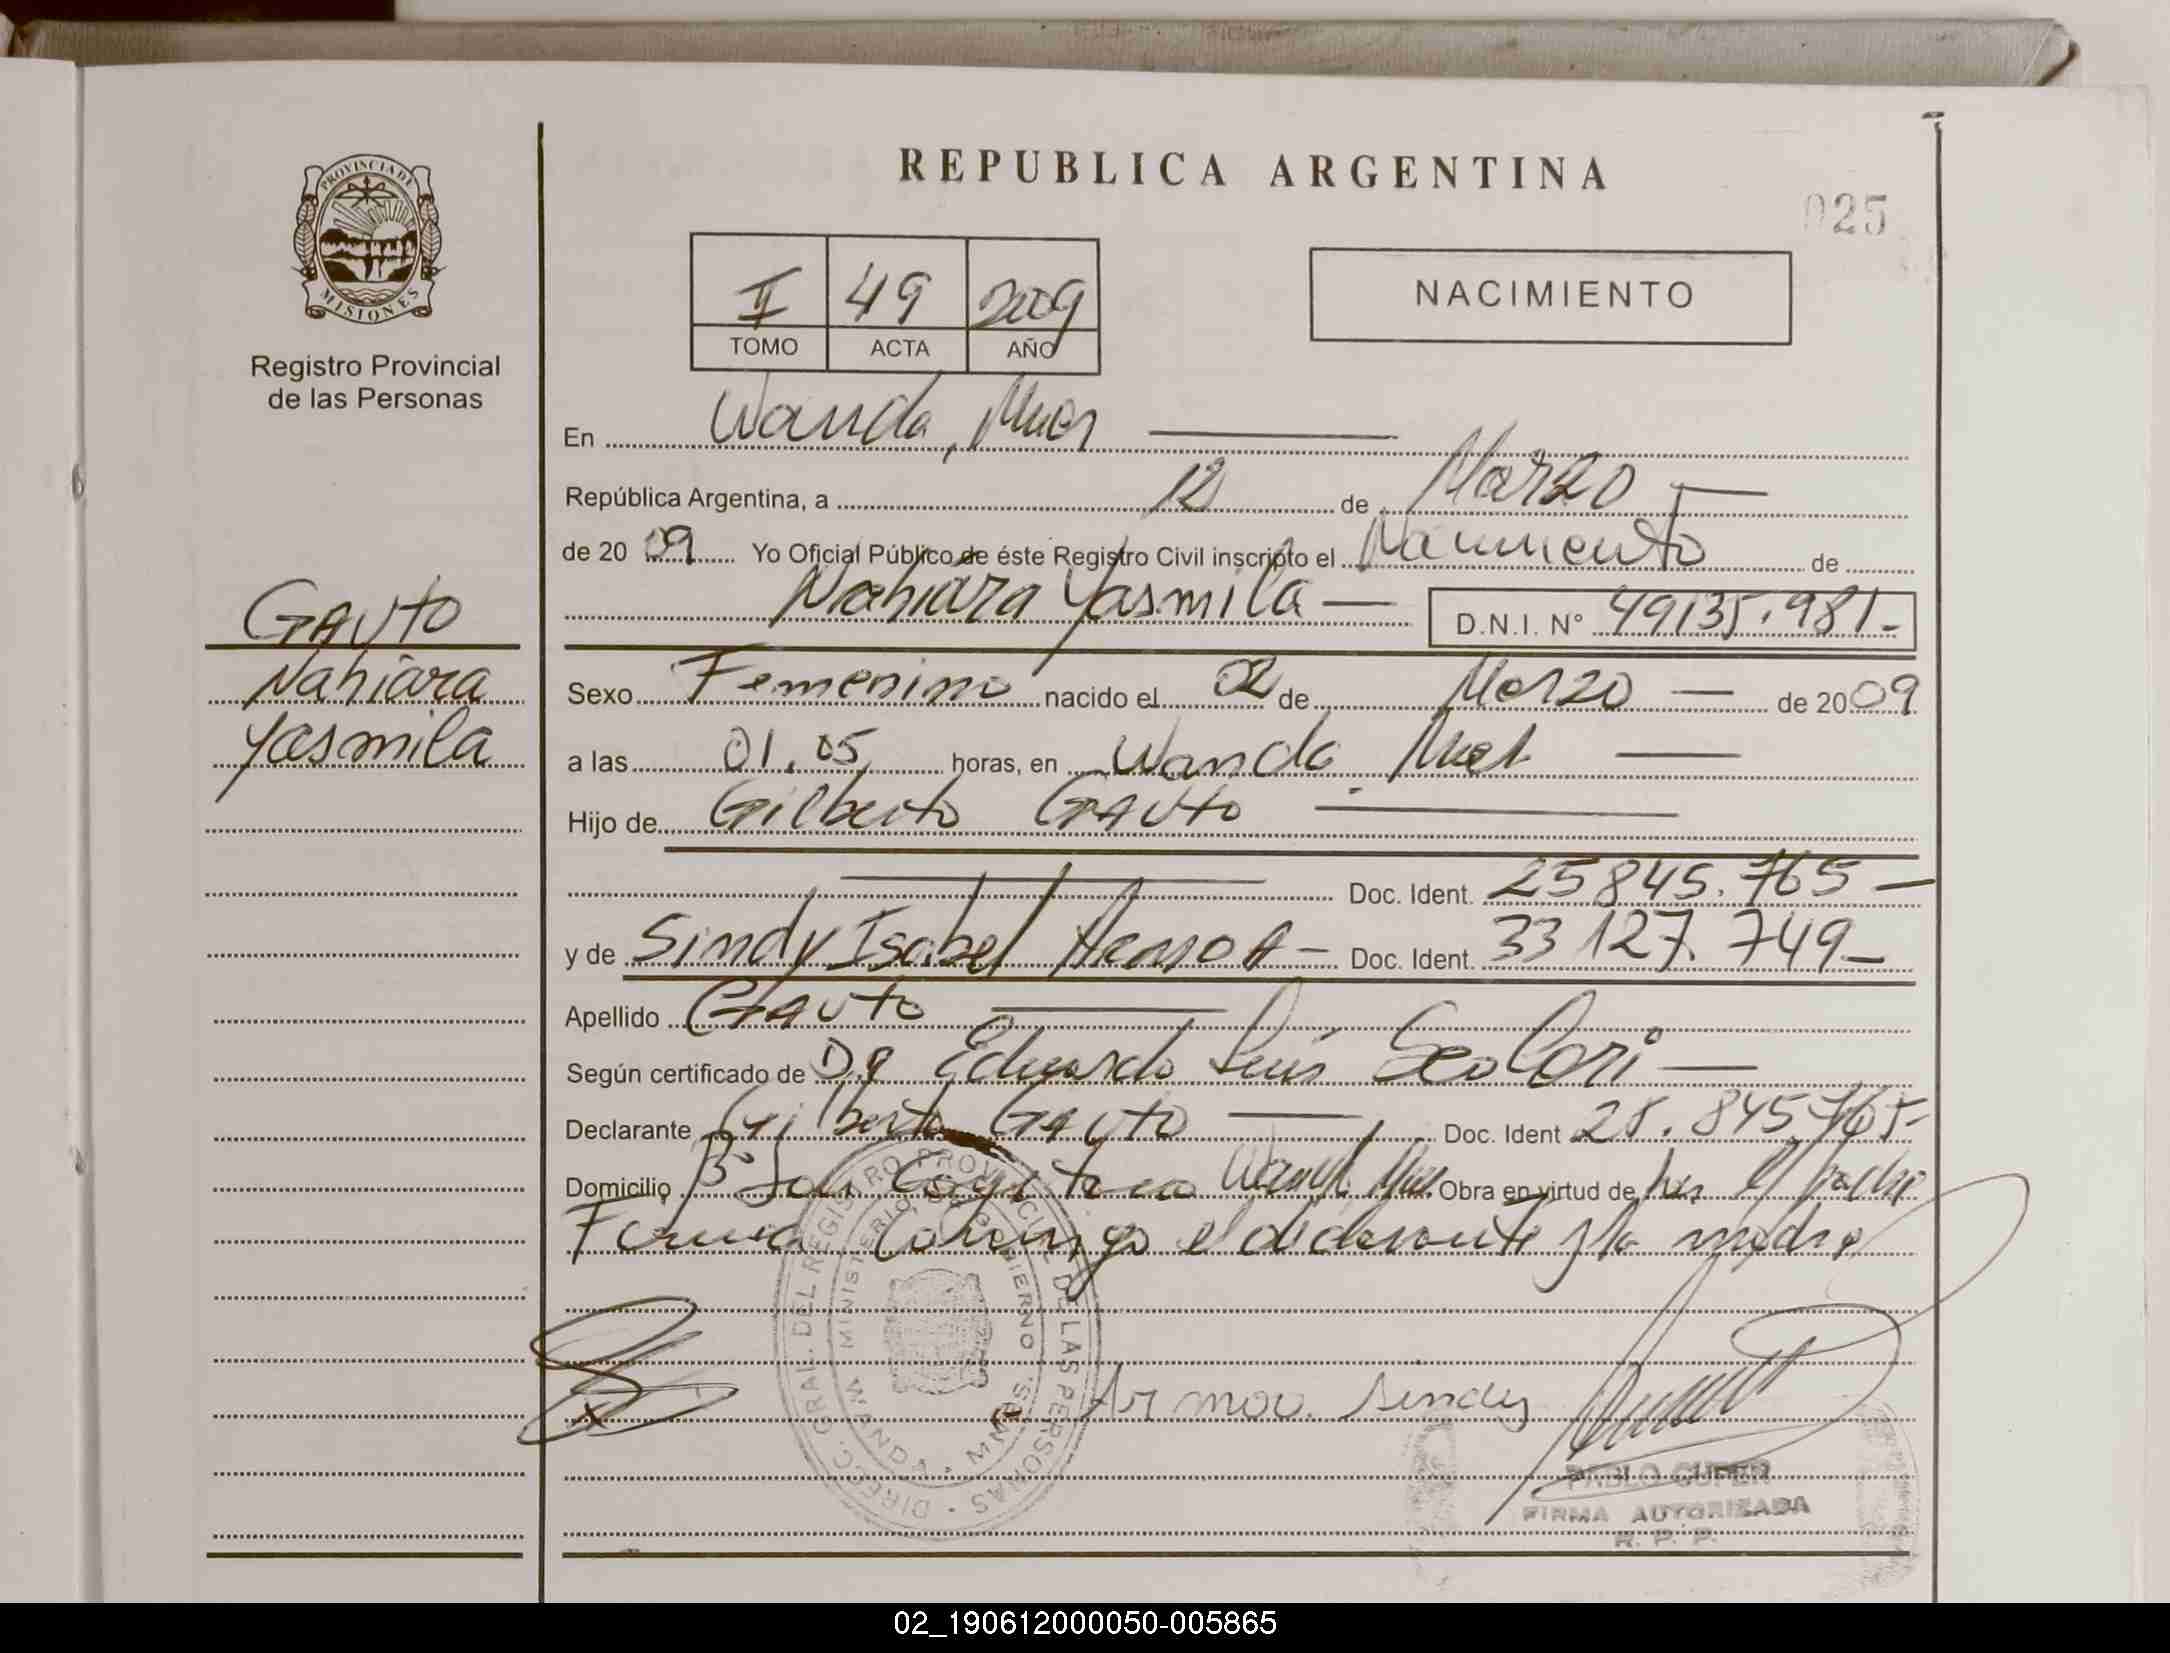 REPUBLICA ARGENTINA
025
PROVINCIA DE
MISIONES
Registro Provincial
de las Personas
II 49 2009
TOMO ACTA AÑO
NACIMIENTO
En Wanda, Mnes
República Argentina, a 12 de Marzo
de 20 09 Yo Oficial Público de éste Registro Civil inscripto el Nacimiento de
Nahiara Yasmila D.N.I. N° 49135.981-
Gauto
Nahiara
Yasmila
Sexo Femenino nacido el 02 de Marzo de 2009
a las 01.05 horas, en Wanda. Mnes
Hijo de Gilberto Gauto
Doc. Ident. 25845.765
y de Sindy Isabel Doc. Ident. 33127.749
Apellido Gauto
Según certificado de Dr Eduardo Luis Scolari
Declarante Gilberto Gauto Doc. Ident 845765
Domicilio B° Wanda Mnes Obra en virtud de Ser El padre
Firma Conmigo el declarante y la madre
DIRECC. GRAL. DEL REGISTRO PROVINCIAL DE LAS PERSONAS
MINISTERIO DE GOBIERNO
WANDA - MNES.
Armoa. Sindy
PABLO CUPER
FIRMA AUTORIZADA
R. P. P.
02_190612000050-005865